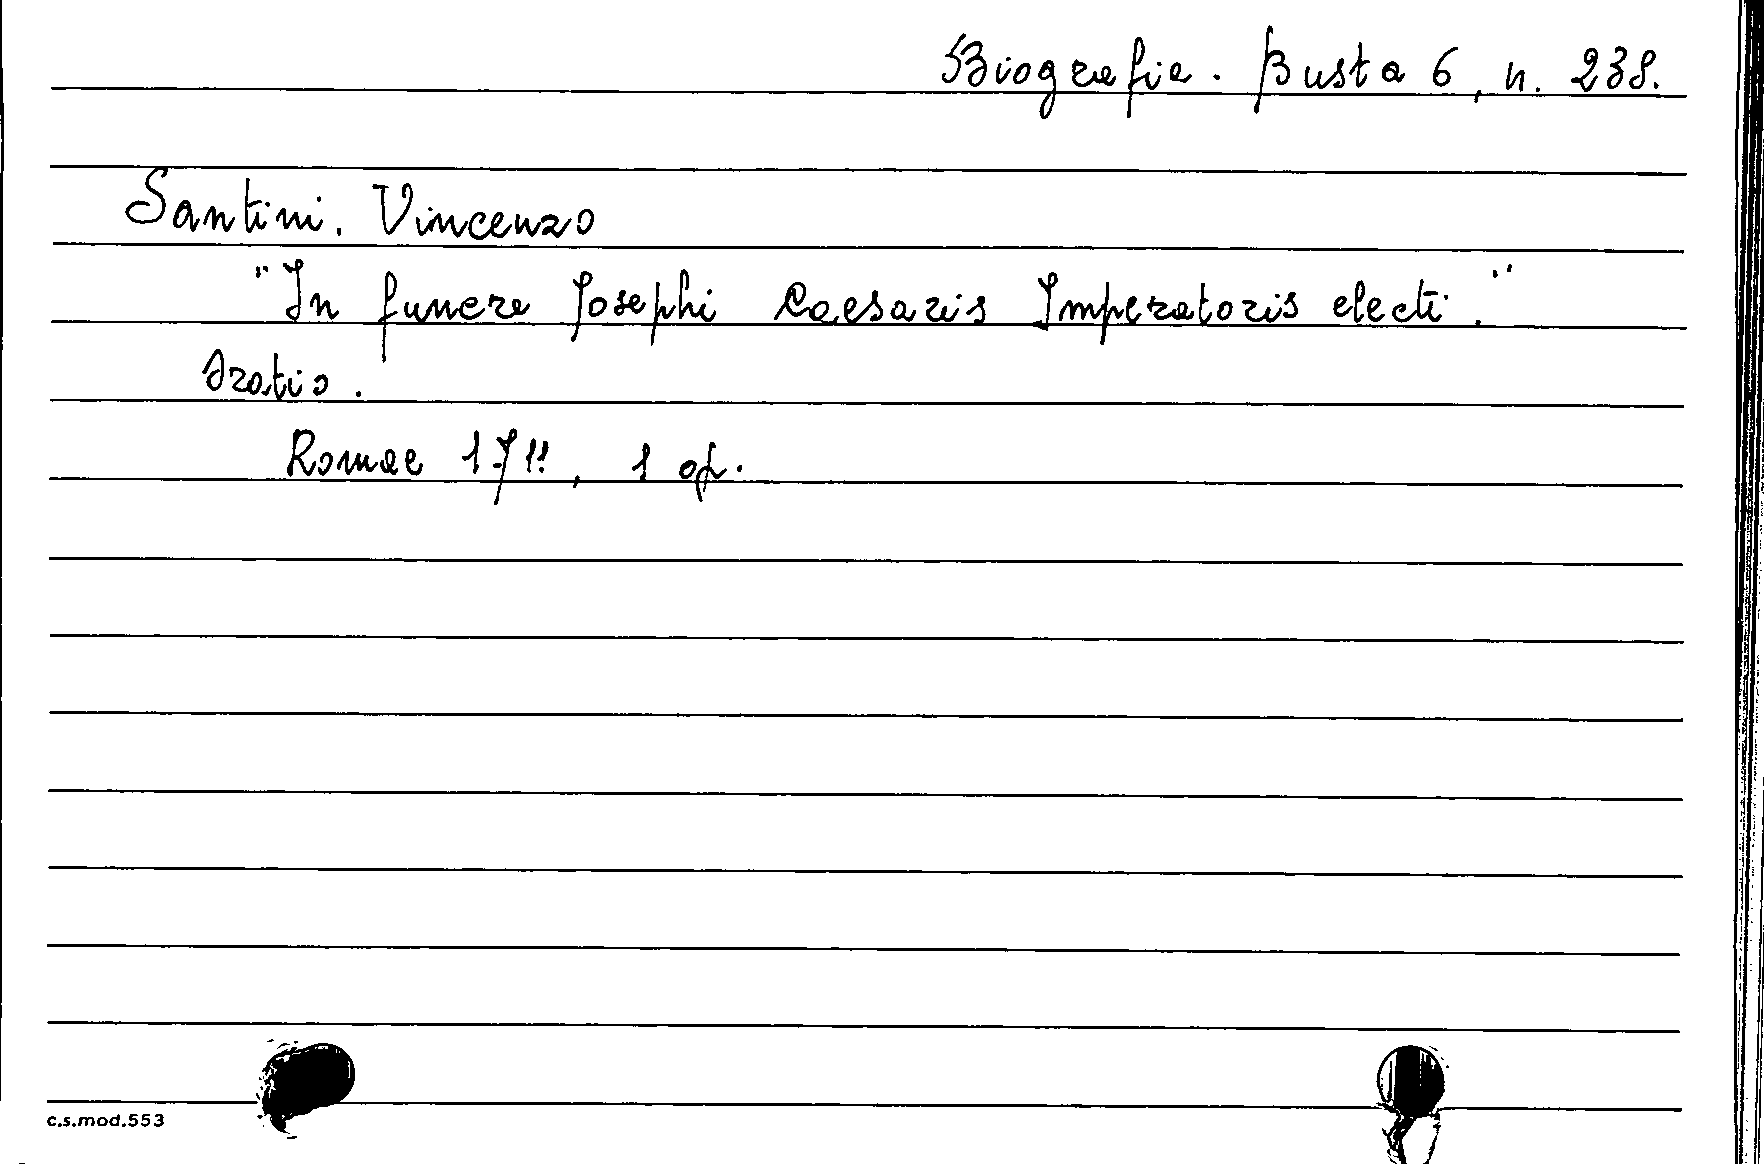 Biografie. Busta 6, n. 238.
Santini. Vincenzo
"In funere Josephi Caesaris Imperatoris electi."
Oratio.
Romae 1711, 1 op.
c.s.mod.553